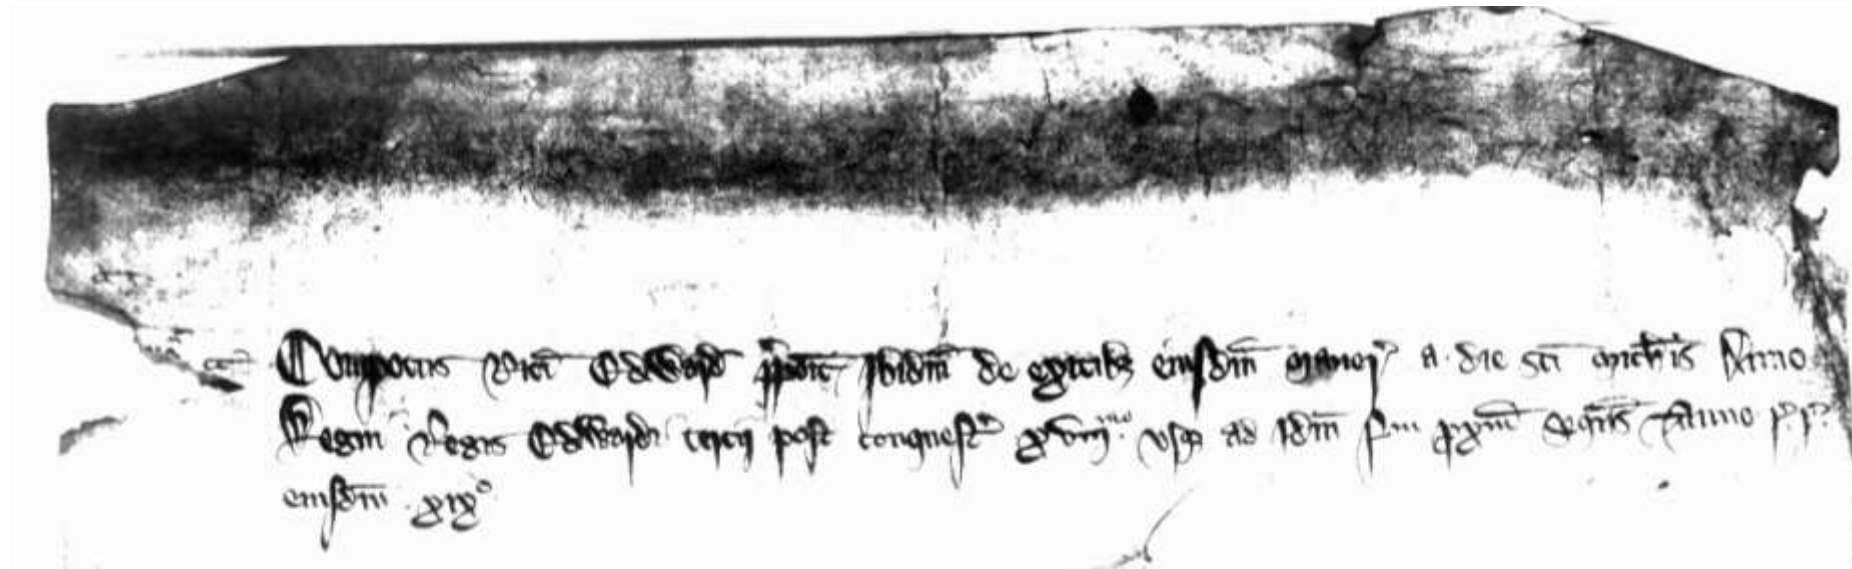 Compotus Ric̄i Edward p̄poīt Ibidm̄ de exitibȝ eiusdm̄ Maner̄ a die sc̄i Mich̄is Anno
Regni Regis Edwardi tercij post conquest̄ xviijᵐᵒ vsqȝ ad Idm̄ fm̄ px̄m̄ seqn̄s Anno r̄ r̄
eiusdm̄ xixᵒ